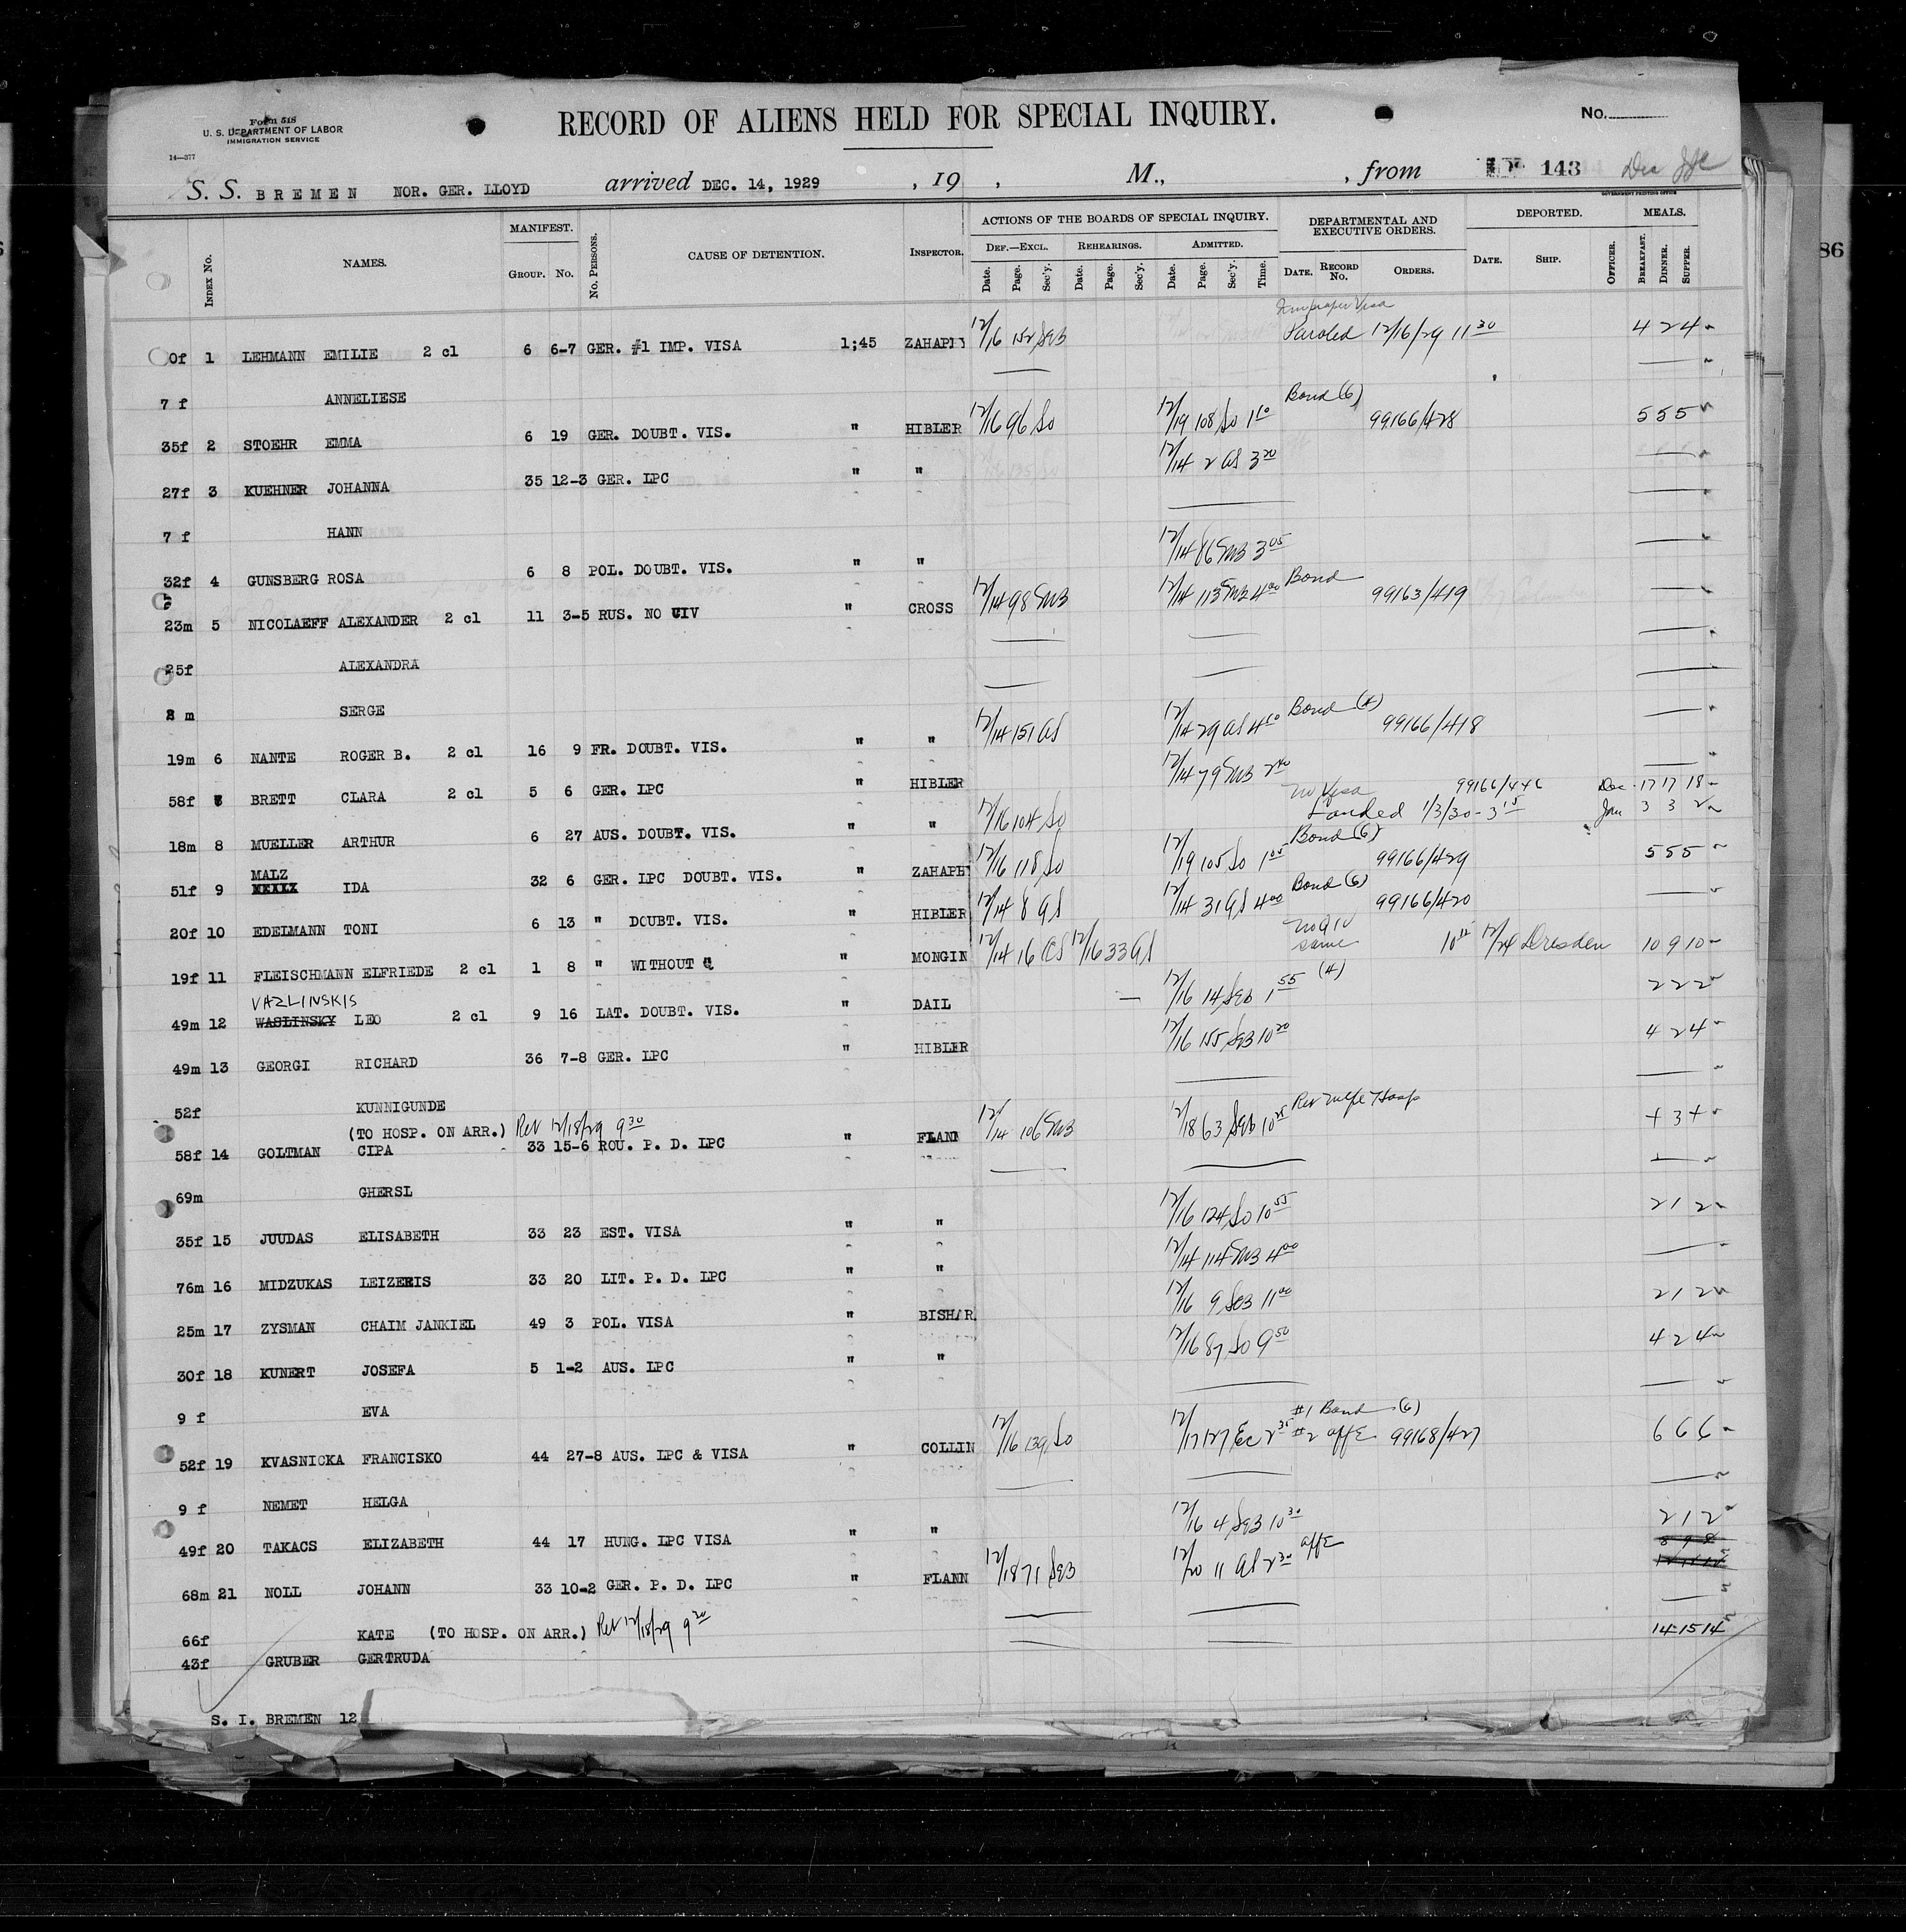 Form 518
U. S. DEPARTMENT OF LABOR
IMMIGRATION SERVICE
14—377
RECORD OF ALIENS HELD FOR SPECIAL INQUIRY.
No.
S. S. BREMEN NOR. GER. LLOYD arrived DEC. 14, 1929 , 19 , M., , from 143
GOVERNMENT PRINTING OFFICE
INDEX No. NAMES. MANIFEST. GROUP. No. No. PERSONS. CAUSE OF DETENTION. INSPECTOR. ACTIONS OF THE BOARDS OF SPECIAL INQUIRY. DEF.—EXCL. REHEARINGS. ADMITTED. DEPARTMENTAL AND EXECUTIVE ORDERS. DEPORTED. MEALS.
Date. Page. Sec'y. Date. Page. Sec'y. Date. Page. Sec'y. Time. DATE. RECORD No. ORDERS. DATE. SHIP. OFFICER. BREAKFAST. DINNER. SUPPER.
Improper Visa
0f 1 LEHMANN EMILIE 2 cl 6 6-7 GER. #1 IMP. VISA 1;45 12/16 152 SEB Paroled 12/16/29 11 30 4 2 4
7 f ANNELIESE
35f 2 STOEHR EMMA 6 19 GER. DOUBT. VIS. " HIBLER 12/16 96 So 12/19 108 So 1 10 Bond (6) 99166/428 5 5 5
27f 3 KUEHNER JOHANNA 35 12-3 GER. LPC " " 12/14 2 GS 3 20
7 f HANN
32f 4 GUNSBERG ROSA 6 8 POL. DOUBT. VIS. " " 12/14 86 EMB 3 05
23m 5 NICOLAEFF ALEXANDER 2 cl 11 3-5 RUS. NO UIV " CROSS 12/14 98 EMB 12/14 113 EMB 4 00 Bond 99163/419
25f ALEXANDRA
8 m SERGE
19m 6 NANTE ROGER B. 2 cl 16 9 FR. DOUBT. VIS. " " 12/14 151 GS 12/14 29 GS 4 10 Bond (4) 99166/418
58f 7 BRETT CLARA 2 cl 5 6 GER. LPC " HIBLER 12/14 79 EMB 2 40
18m 8 MUELLER ARTHUR 6 27 AUS. DOUBT. VIS. " " 12/16 104 So No Visa 99166/446 Dec. 17 17 18
Landed 1/3/30 - 3 15 Jan 3 3 2
51f 9 MALZ IDA 32 6 GER. LPC DOUBT. VIS. " 12/16 118 So 12/19 105 So 1 05 Bond (6) 99166/429 5 5 5
20f 10 EDELMANN TONI 6 13 " DOUBT. VIS. " HIBLER 12/14 8 GS 12/14 31 GS 4 00 Bond (6) 99166/420
19f 11 FLEISCHMANN ELFRIEDE 2 cl 1 8 " WITHOUT Q " MONGIN 12/14 16 CS 12/16 33 GS No QIV same 12/24 Dresden 10 9 10
VAZLINSKIS
49m 12 WASLINSKY LEO 2 cl 9 16 LAT. DOUBT. VIS. " DAIL 12/16 14 SEB 1 55 (4) 2 2 2
49m 13 GEORGI RICHARD 36 7-8 GER. LPC " HIBLER 12/16 155 SEB 10 20 4 2 4
52f KUNNIGUNDE
(TO HOSP. ON ARR.) Ret 12/18/29 9 30
58f 14 GOLTMAN CIPA 33 15-6 ROU. P. D. LPC " FLANN 12/14 106 EMB 12/18 63 SEB 10 25 + 3 +
69m GHERSL
35f 15 JUUDAS ELISABETH 33 23 EST. VISA " " 12/16 124 So 10 55 2 1 2
76m 16 MIDZUKAS LEIZERIS 33 20 LIT. P. D. LPC " " 12/14 114 EMB 4 00
25m 17 ZYSMAN CHAIM JANKIEL 49 3 POL. VISA " BISHAR. 12/16 9 SEB 11 00 2 1 2
30f 18 KUNERT JOSEFA 5 1-2 AUS. LPC " " 12/16 87 So 9 50 4 2 4
9 f EVA
52f 19 KVASNICKA FRANCISKO 44 27-8 AUS. LPC & VISA " COLLIN 12/16 139 So 12/17 127 EC 2 35 #1 Bond (6) #2 affe 99168/427 6 6 6
9 f NEMET HELGA
49f 20 TAKACS ELIZABETH 44 17 HUNG. LPC VISA " " 12/16 4 SEB 10 30 2 1 2
68m 21 NOLL JOHANN 33 10-2 GER. P. D. LPC " FLANN 12/18 71 SEB 12/20 11 GS 2 30 affe
66f KATE (TO HOSP. ON ARR.) Ret 12/18/29 9 20 14 15 14
43f GRUBER GERTRUDA
S. I. BREMEN 12
86